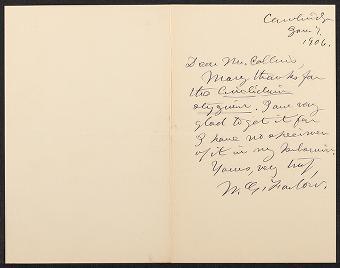 Cambridge
Jan. 7.
1906.
Dear Mr. Collins,
Many thanks for
the
. I am very
glad to get it for
I have no specimen
of it in my herbarium.
Yours, very truly,
W. G. Farlow.